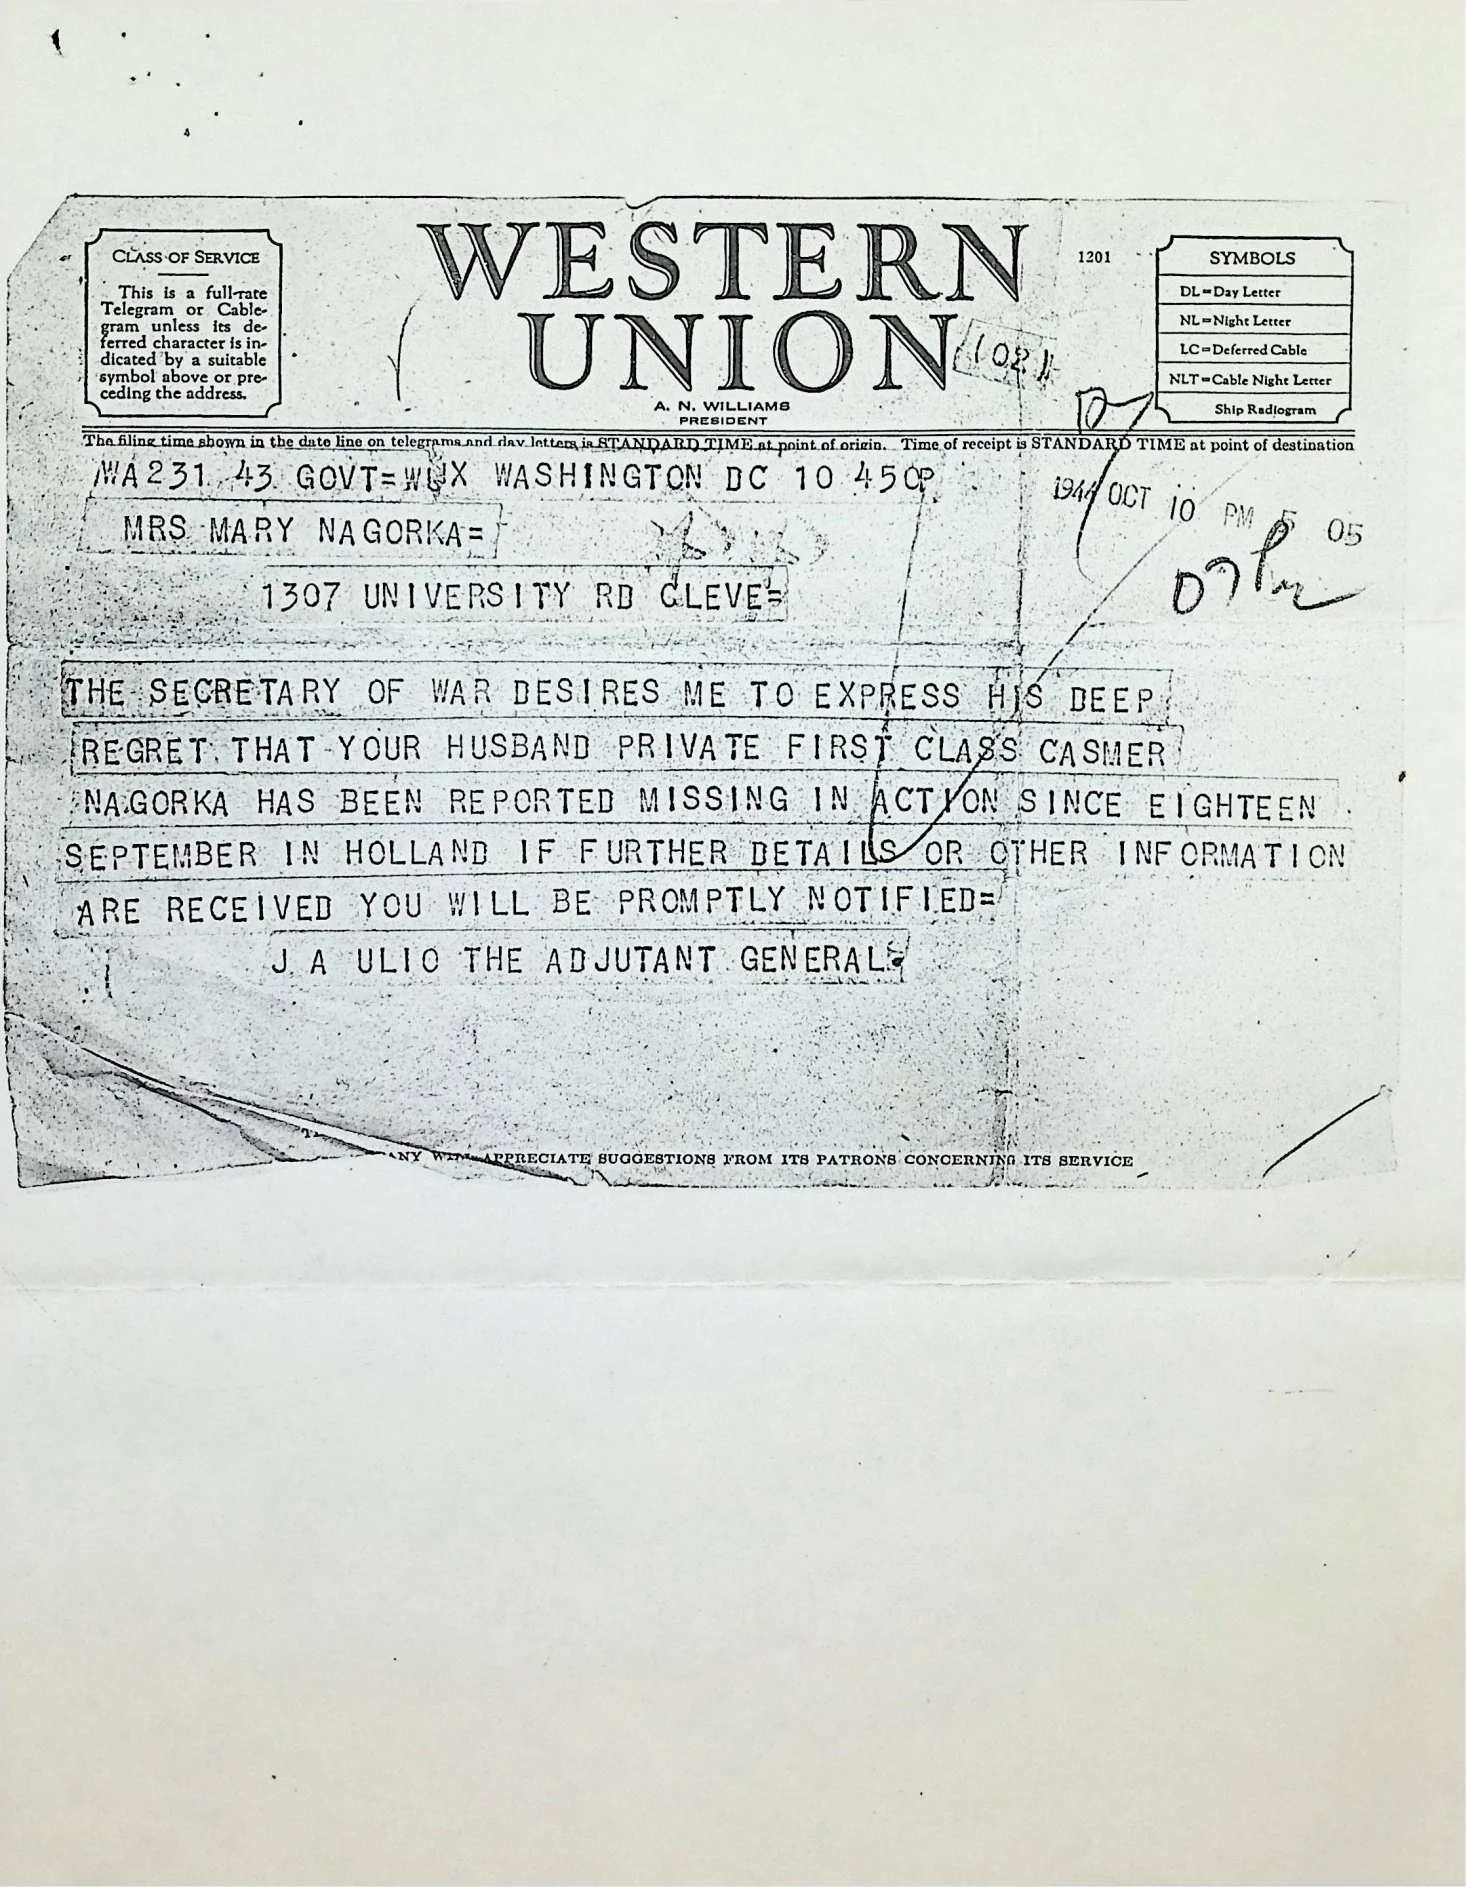 CLASS OF SERVICE
This is a full-rate
Telegram or Cable-
gram unless its de-
ferred character is in-
dicated by a suitable
symbol above or pre-
ceding the address.
WESTERN
UNION
A. N. WILLIAMS
PRESIDENT
1201
SYMBOLS
DL=Day Letter
NL=Night Letter
LC=Deferred Cable
NLT=Cable Night Letter
Ship Radiogram
The filing time shown in the date line on telegrams and day letters is STANDARD TIME at point of origin. Time of receipt is STANDARD TIME at point of destination
WA231 43 GOVT=WUX WASHINGTON DC 10 450P
1944 OCT 10 PM 5 05
MRS MARY NAGORKA=
1307 UNIVERSITY RD CLEVE=
THE SECRETARY OF WAR DESIRES ME TO EXPRESS HIS DEEP
REGRET THAT YOUR HUSBAND PRIVATE FIRST CLASS CASMER
NAGORKA HAS BEEN REPORTED MISSING IN ACTION SINCE EIGHTEEN
SEPTEMBER IN HOLLAND IF FURTHER DETAILS OR OTHER INFORMATION
ARE RECEIVED YOU WILL BE PROMPTLY NOTIFIED=
J A ULIO THE ADJUTANT GENERAL=
APPRECIATE SUGGESTIONS FROM ITS PATRONS CONCERNING ITS SERVICE